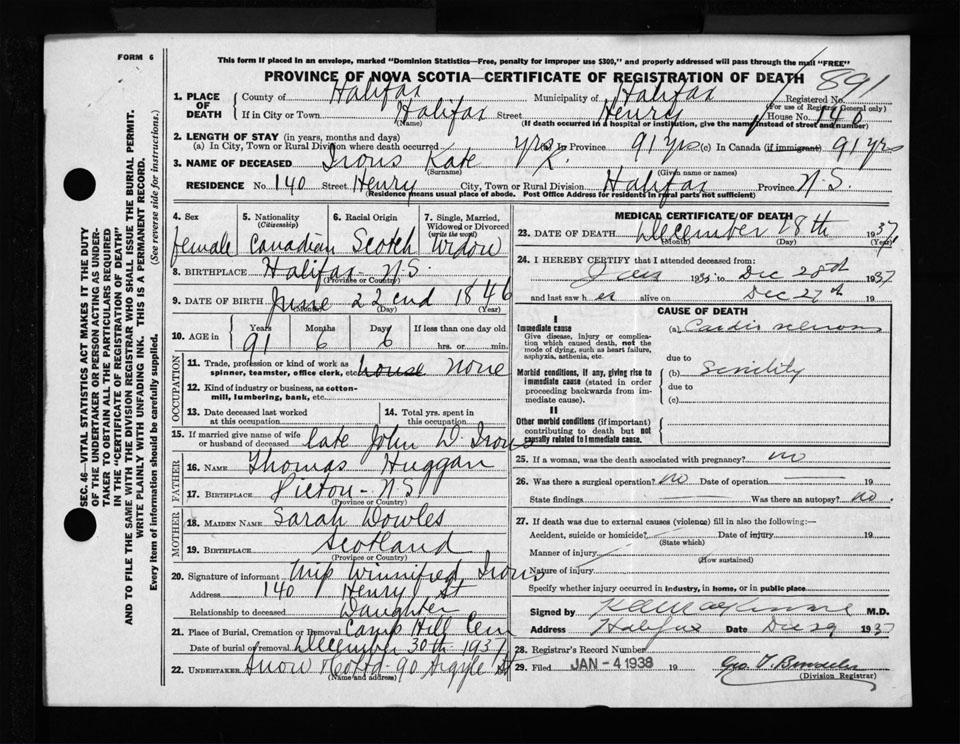 FORM 6
This form if placed in an envelope, marked "Dominion Statistics—Free, penalty for improper use $300," and properly addressed will pass through the mail "FREE"
PROVINCE OF NOVA SCOTIA—CERTIFICATE OF REGISTRATION OF DEATH
891
1. PLACE OF DEATH
County of Halifax Municipality of Halifax Registered No.
(For use of Registrar General only)
If in City or Town Halifax Street Henry House No. 140
(Name) (If death occurred in a hospital or institution, give the name instead of street and number)
2. LENGTH OF STAY (in years, months and days)
(a) In City, Town or Rural Division where death occurred yrs (b) In Province 91 yrs (c) In Canada (if immigrant) 91 yrs
3. NAME OF DECEASED Irons Kate K.
(Surname) (Given name or names)
RESIDENCE No. 140 Street Henry City, Town or Rural Division Halifax Province N.S.
(Residence means usual place of abode. Post Office Address for residents in rural parts not sufficient)
4. Sex 5. Nationality (Citizenship) 6. Racial Origin 7. Single, Married, Widowed or Divorced (write the word)
female Canadian Scotch Widow
8. BIRTHPLACE Halifax N.S.
(Province or Country)
9. DATE OF BIRTH June 22nd 1846
(Month) (Day) (Year)
10. AGE in Years Months Days If less than one day old
91 6 6 hrs. or min.
OCCUPATION
11. Trade, profession or kind of work as spinner, teamster, office clerk, etc. house none
12. Kind of industry or business, as cotton-mill, lumbering, bank, etc.
13. Date deceased last worked at this occupation 14. Total yrs. spent in this occupation
15. If married give name of wife or husband of deceased late John D. Irons
FATHER
16. NAME Thomas Huggan
17. BIRTHPLACE Pictou - N.S.
(Province or Country)
MOTHER
18. MAIDEN NAME Sarah Dowles
19. BIRTHPLACE Scotland
(Province or Country)
20. Signature of informant Winnifred Irons
Address 140 Henry St
Relationship to deceased Daughter
21. Place of Burial, Cremation or Removal Camp Hill Cem
Date of burial or removal December 30th 1937
22. UNDERTAKER Snow 90 Argyle St
(Name and address)
MEDICAL CERTIFICATE OF DEATH
23. DATE OF DEATH December 28th 1937
(Month) (Day) (Year)
24. I HEREBY CERTIFY that I attended deceased from:
to Dec 28th 1937
and last saw her alive on Dec 27th 19
CAUSE OF DEATH
I
Immediate cause
Give disease, injury or complication which caused death, not the mode of dying, such as heart failure, asphyxia, asthenia, etc.
(a)
due to
Morbid conditions, if any, giving rise to immediate cause (stated in order proceeding backwards from immediate cause).
(b) Senility
due to
(c)
II
Other morbid conditions (if important) contributing to death but not causally related to immediate cause.
25. If a woman, was the death associated with pregnancy? no
26. Was there a surgical operation? no Date of operation 19
State findings Was there an autopsy? no.
27. If death was due to external causes (violence) fill in also the following:—
Accident, suicide or homicide? Date of injury 19
(State which)
Manner of injury
(How sustained)
Nature of injury
Specify whether injury occurred in industry, in home, or in public place
Signed by M.D.
Address Halifax Date Dec 29 1937
28. Registrar's Record Number
29. Filed JAN - 4 1938 19
(Division Registrar)
SEC. 46—VITAL STATISTICS ACT MAKES IT THE DUTY
OF THE UNDERTAKER OR PERSON ACTING AS UNDER-
TAKER TO OBTAIN ALL THE PARTICULARS REQUIRED
IN THE "CERTIFICATE OF REGISTRATION OF DEATH"
AND TO FILE THE SAME WITH THE DIVISION REGISTRAR WHO SHALL ISSUE THE BURIAL PERMIT.
WRITE PLAINLY WITH UNFADING INK. THIS IS A PERMANENT RECORD.
Every item of information should be carefully supplied. (See reverse side for instructions.)